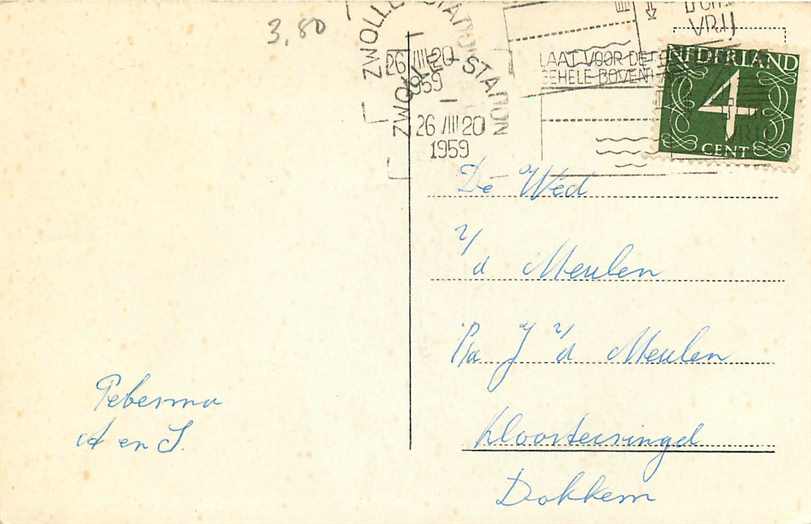 3,80
ZWOLLE-STATION
26 III 20
1959
ZWOLLE-STATION
26 III 20
1959
VRIJ
LAAT VOOR DE
GEHELE BOVEN
NEDERLAND
4
CENT
De Wed
v/d Meulen
Pa J v/d Meulen
Kloostersingel
Dokkem
Pebesma
A en S.